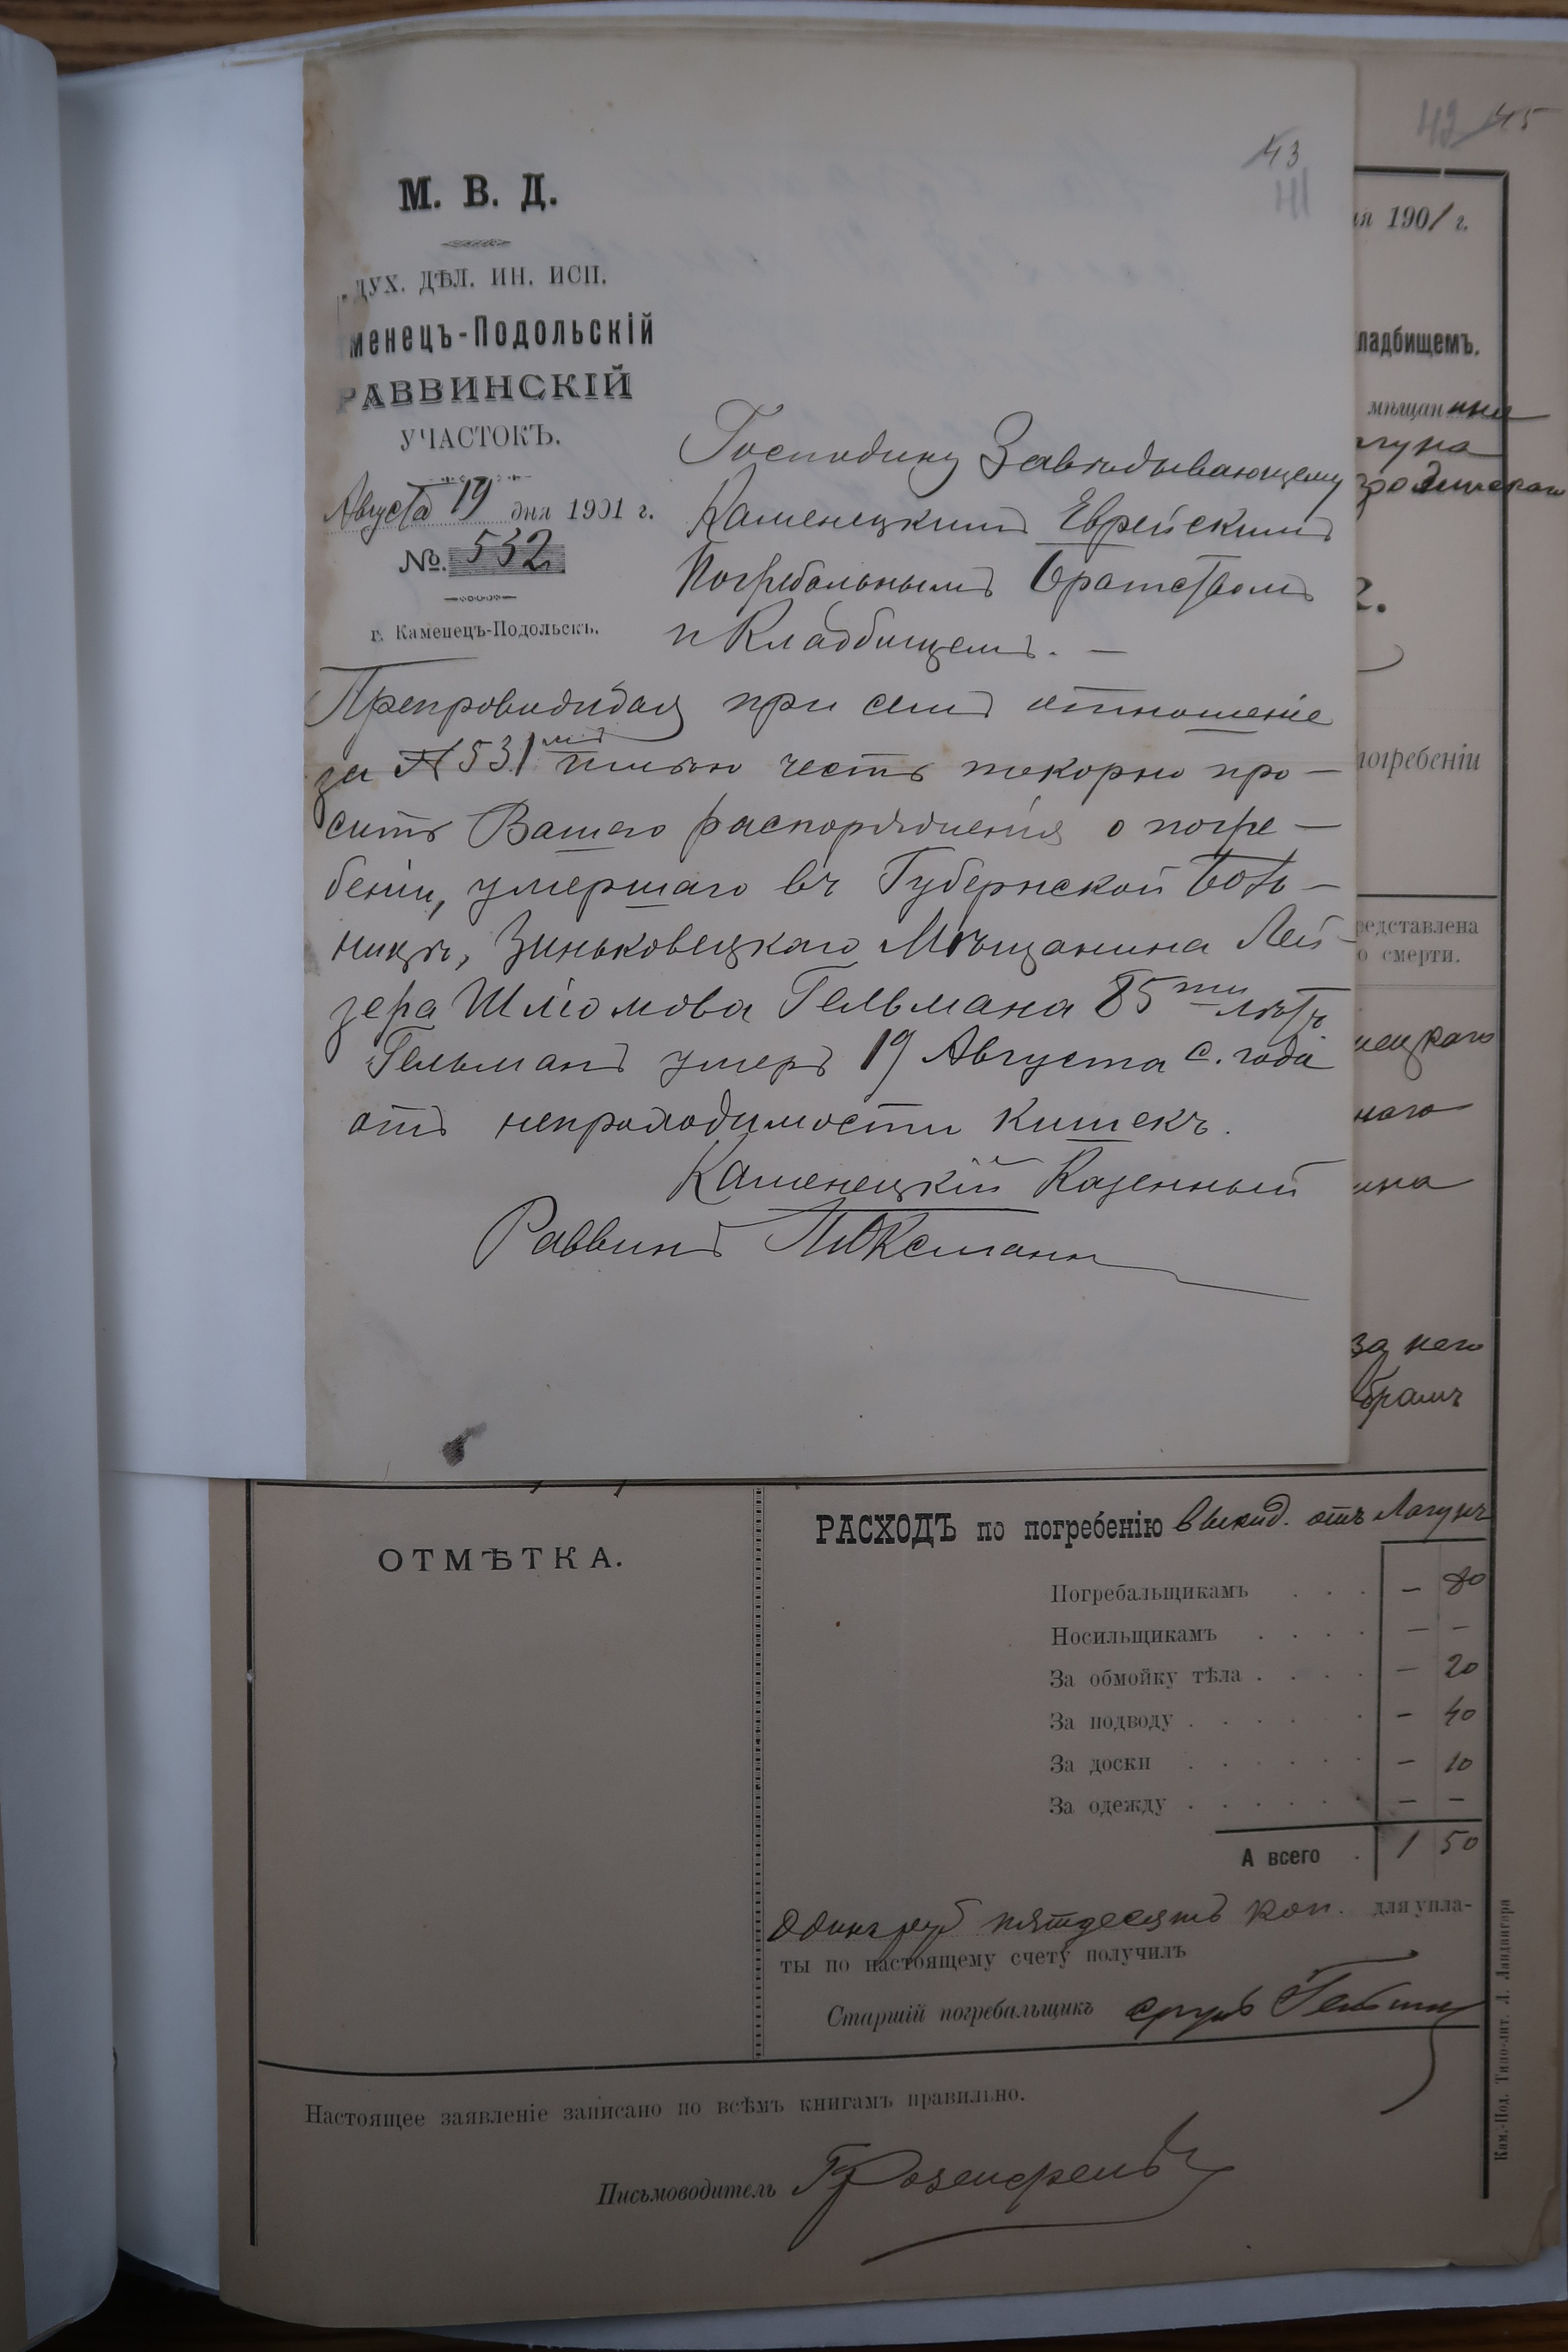 43
М. В. Д.
ДУХ. ДѢЛ. ИН. ИСП.
менецъ-Подольскій
РАВВИНСКІЙ
УЧАСТОКЪ.
Августа 19 дня 1901 г.
№. 532
г. Каменецъ-Подольскъ.
Господину Завѣдывающему
Каменецкимъ Еврейскимъ
Погребальнымъ Братствомъ
и Кладбищемъ. —
при семъ отношеніе
за № 531 имѣю честь покорно про-
сить Вашего распоряженія о погре-
беніи, умершаго въ Губернской Боль-
ницѣ, Зиньковецкаго Мѣщанина Лей-
зера Шліомова Гельмана 85ти лѣтъ
Гельманъ умеръ 19 Августа с. года
отъ непроходимости кишекъ.
Каменецкій Казенный
Раввинъ
42 45
ня 1901 г.
ладбищемъ.
мѣщанина
гуна
2.
погребеніи
редставлена
о смерти.
нецкаго
наго
ина
за него
ОТМѢТКА.
РАСХОДЪ по погребенію выкид. отъ Лагунъ
Погребальщикамъ . . . — 80
Носильщикамъ . . . . — —
За обмойку тѣла . . . . — 20
За подводу . . . . . . — 40
За доски . . . . . . — 10
За одежду . . . . . . — —
А всего . 1 50
Одинъ руб пятдесятъ коп. для упла-
ты по настоящему счету получилъ
Старшій погребальщикъ
Настоящее заявленіе записано по всѣмъ книгамъ правильно.
Письмоводитель
Кам.-Под. Типо-лит. Л. Ландвигера